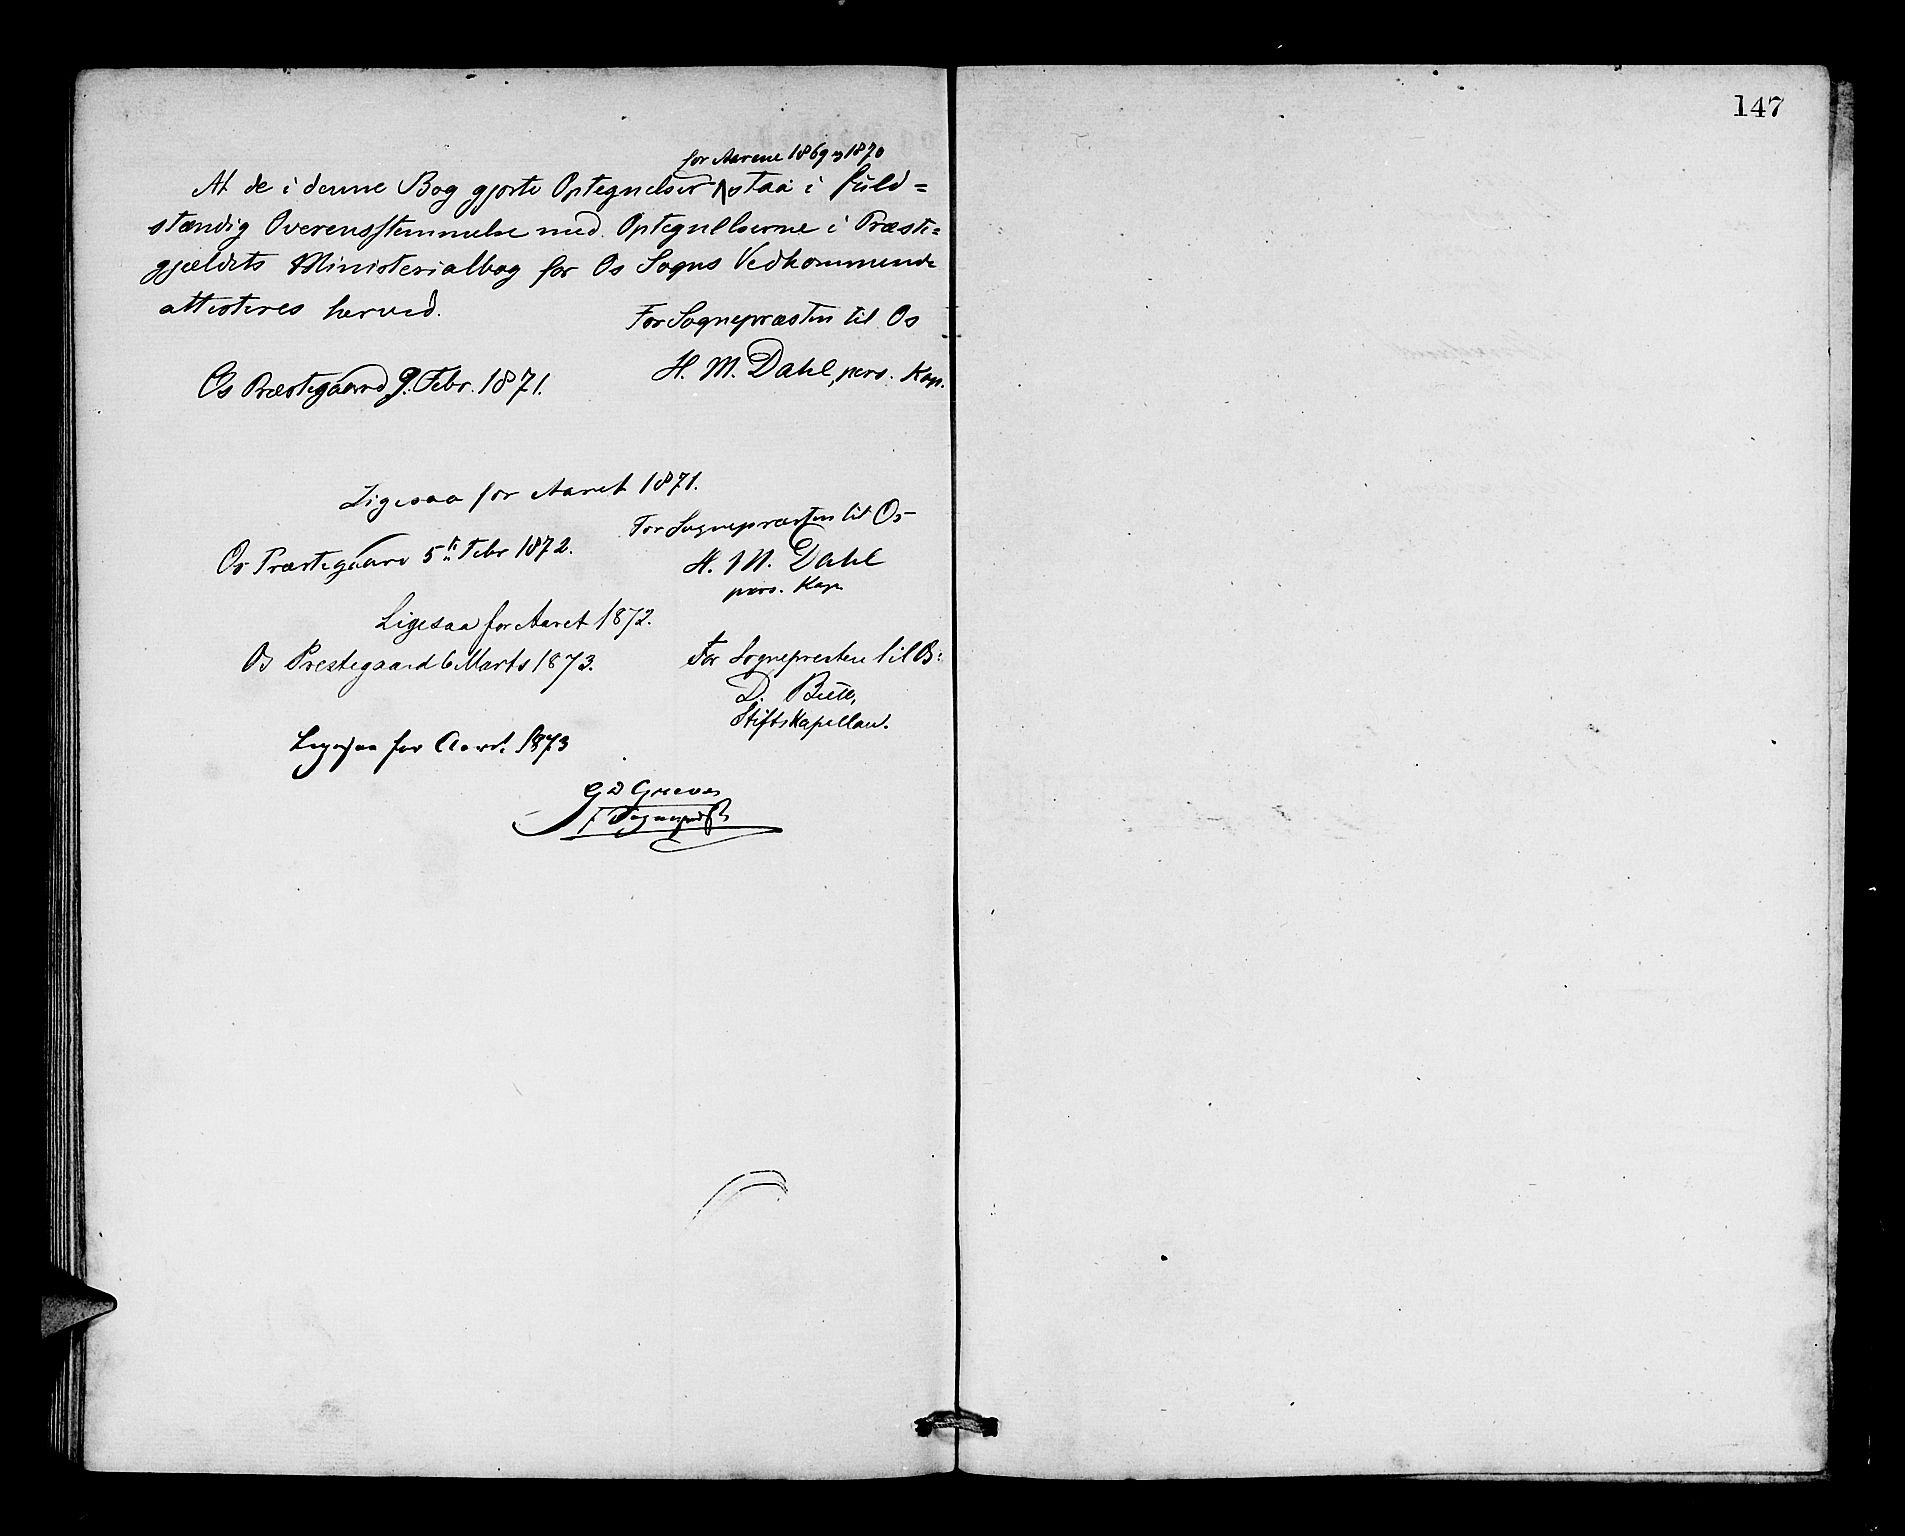 147
for Aarene 1869 og 1870
At de i denne Bog gjorte Optegnelser staa i fuld=
stændig Overensstemmelse med Optegnelserne i Præste=
gjældets Ministerialbog for Os Sogns Vedkommende
attesteres herved.
For Sognepræsten til Os
H. M. Dahl, pers. Kap.
Os Præstegaard 9. Febr. 1871.
Ligesaa for Aaret 1871.
For Sognepræsten til Os
Os Præstegaard 5te Febr 1872.
H. M. Dahl
pers. Kap
Ligesaa for Aaret 1872.
Os Prestegaard 6 Marts 1873.
For Sognepresten til Os:
D.
Stiftskapellan.
Ligesaa for Aaret 1873
G D Greve